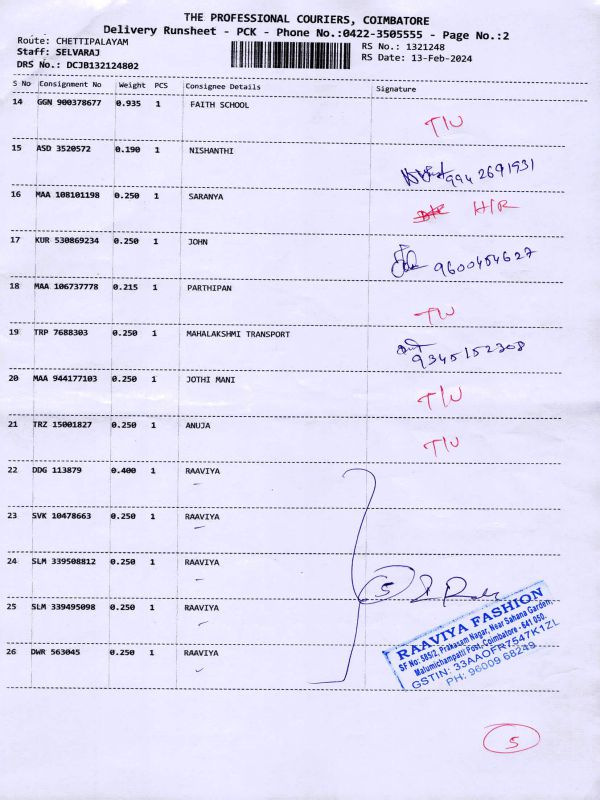 THE PROFESSIONAL COURIERS, COIMBATORE
Delivery Runsheet - PCK - Phone No.:0422-3505555 - Page No.:2
Route: CHETTIPALAYAM
Staff: SELVARAJ
DRS No.: DCJB132124802
RS No.: 1321248
RS Date: 13-Feb-2024
S No Consignment No Weight PCS Consignee Details Signature
14 GGN 900378677 0.935 1 FAITH SCHOOL
T/U
15 ASD 3520572 0.190 1 NISHANTHI
994 2691931
16 MAA 108101198 0.250 1 SARANYA
H/R
17 KUR 530869234 0.250 1 JOHN
9600454627
18 MAA 106737778 0.215 1 PARTHIPAN
T/U
19 TRP 7688303 0.250 1 MAHALAKSHMI TRANSPORT
9345152308
20 MAA 944177103 0.250 1 JOTHI MANI
T/U
21 TRZ 15001827 0.250 1 ANUJA
T/U
22 DDG 113879 0.400 1 RAAVIYA
23 SVK 10478663 0.250 1 RAAVIYA
24 SLM 339508812 0.250 1 RAAVIYA
5
25 SLM 339495098 0.250 1 RAAVIYA
26 DWR 563045 0.250 1 RAAVIYA
RAAVIYA FASHION
SF No: 585/2, Prakasam Nagar, Near Sahana Garden,
Malumichampatti Post, Coimbatore - 641 050.
GSTIN: 33AAOFR7547K1ZL
PH: 96009 68249
5